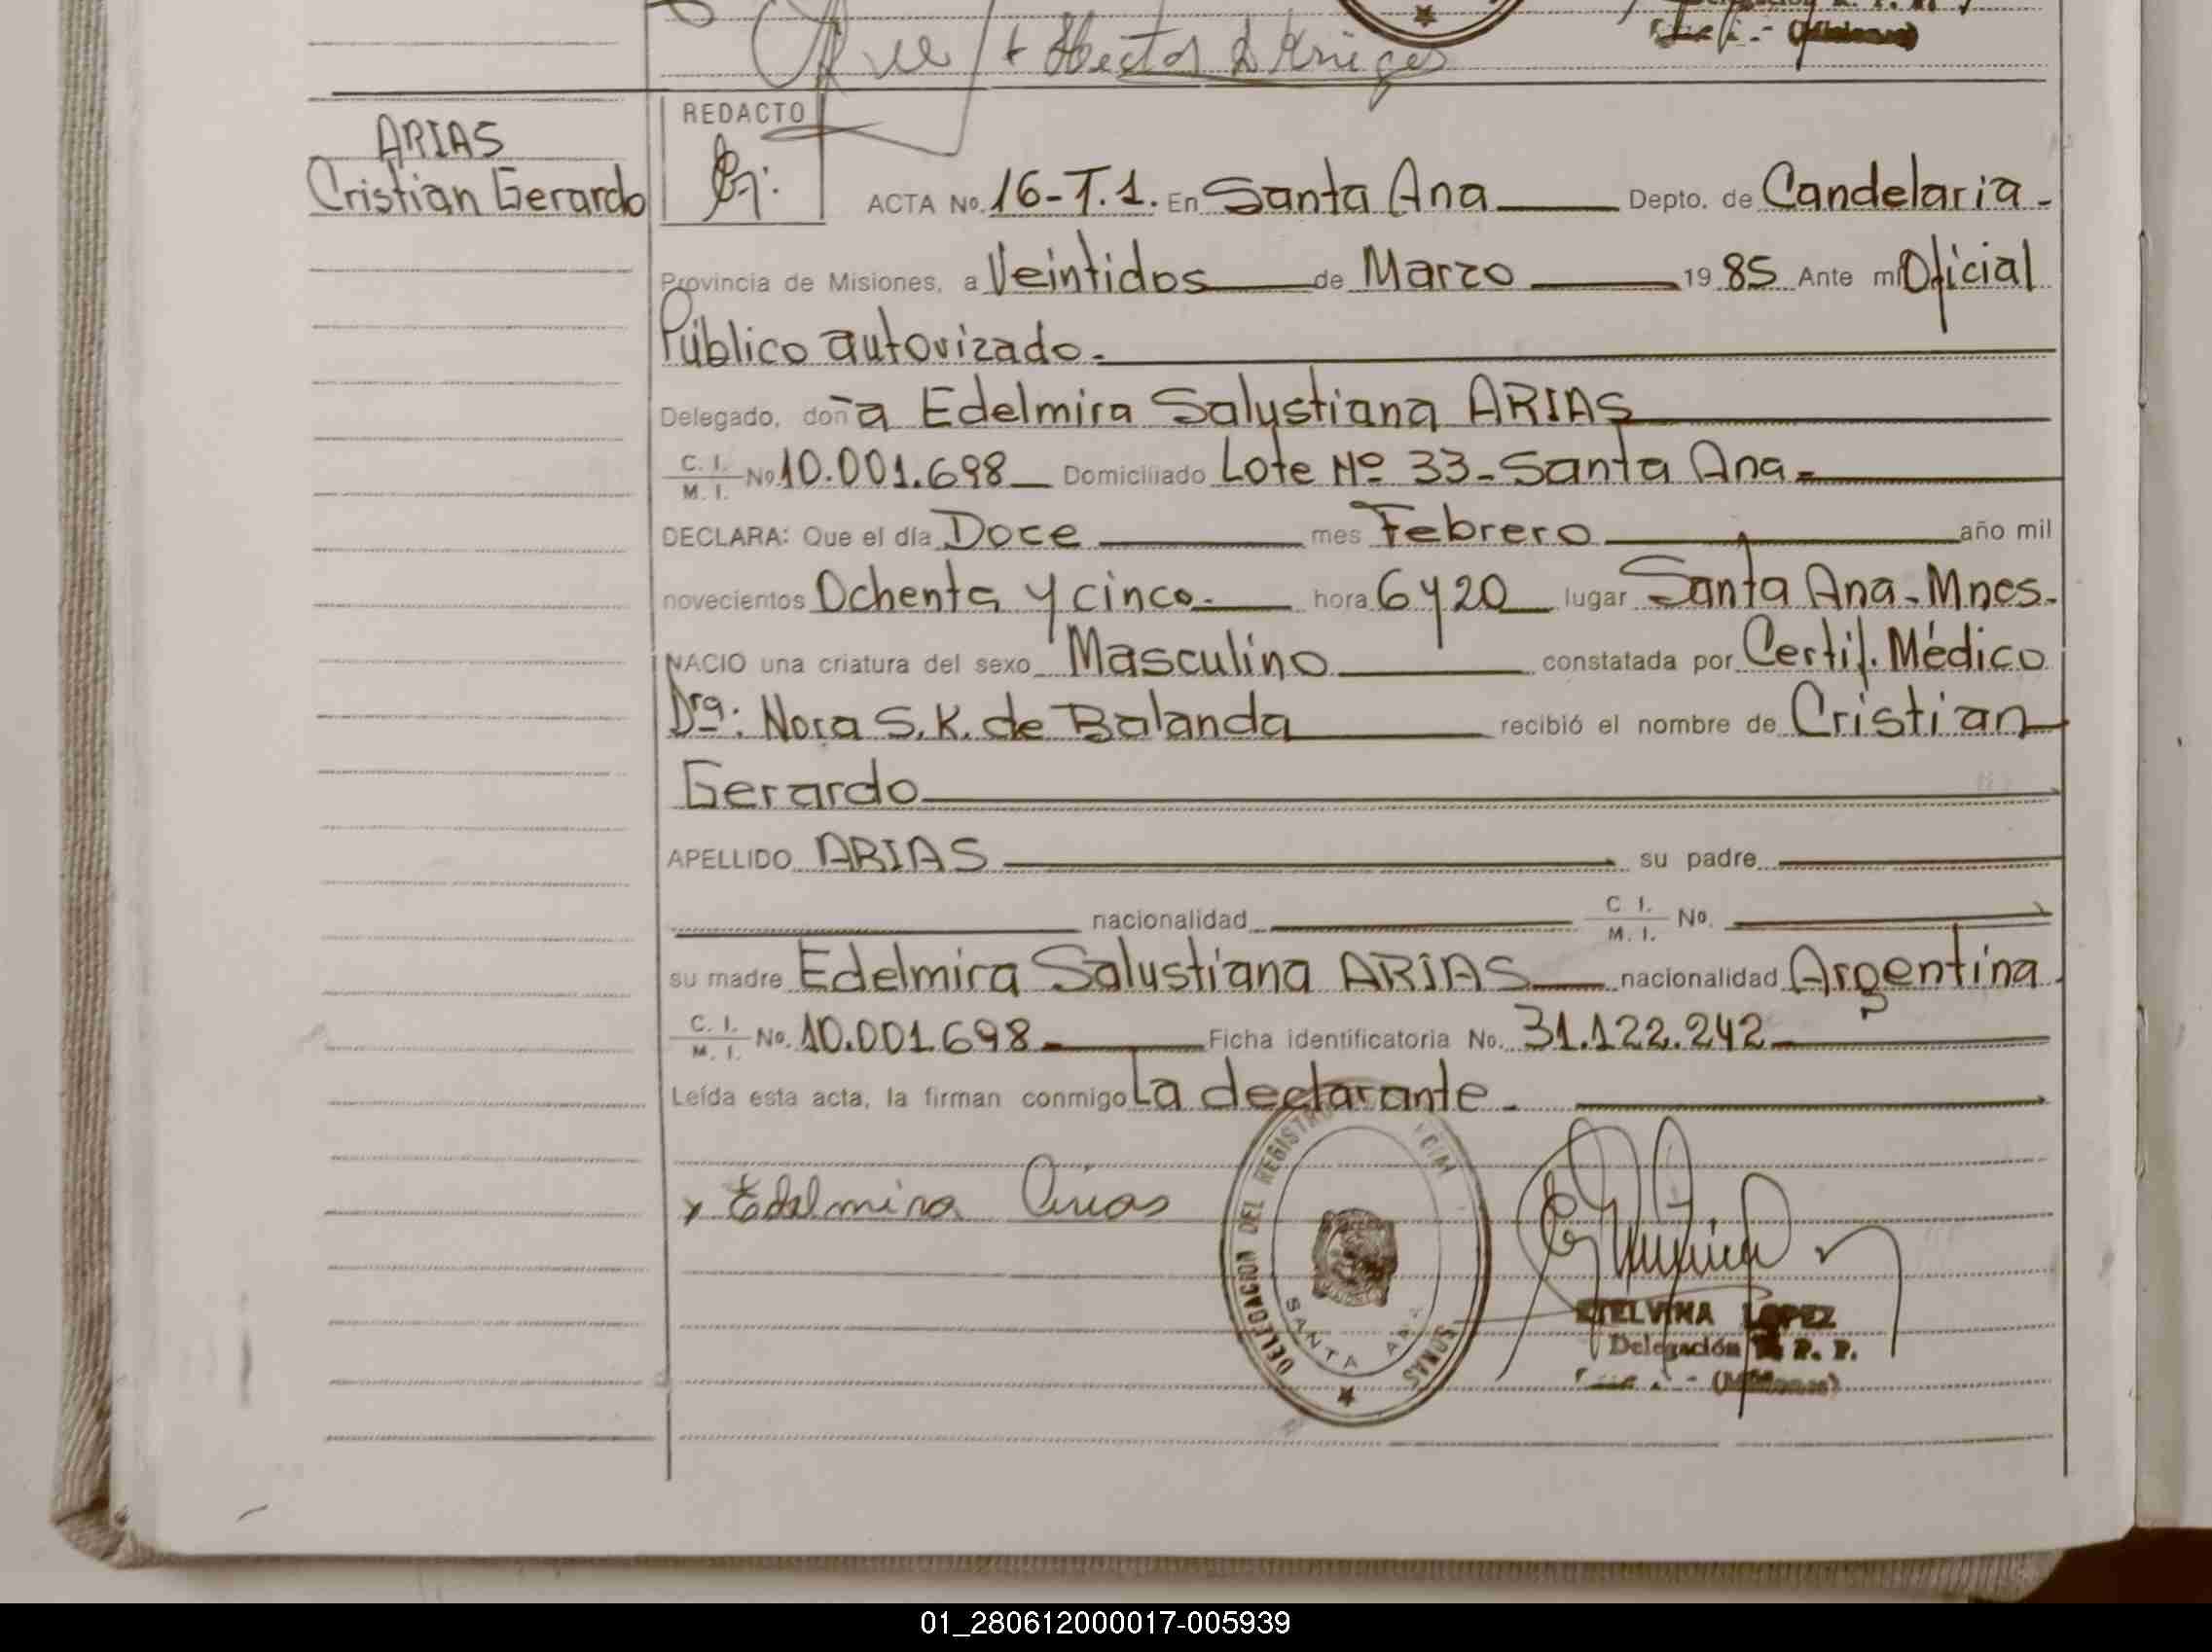 + Hector D Krieger
(Misiones)
ARIAS
Cristian Gerardo
REDACTO
ACTA No. 16-T.1. En Santa Ana Depto. de Candelaria-
Provincia de Misiones, a Veintidos de Marzo 1985 Ante mi Oficial
Público autorizado.-
Delegado, doña Edelmira Salustiana ARIAS
C. I. / M. I. No 10.001.698 Domiciliado Lote Nº 33-Santa Ana-
DECLARA: Que el día Doce mes Febrero año mil
novecientos Ochenta y cinco.- hora 6 y 20 lugar Santa Ana-Mnes.
NACIO una criatura del sexo Masculino constatada por Certif. Médico
Dra: Nora S. K. de Balanda recibió el nombre de Cristian
Gerardo
APELLIDO ARIAS su padre
nacionalidad C I. / M. I. No.
su madre Edelmira Salustiana ARIAS nacionalidad Argentina
C. I. / M. I. No. 10.001.698 Ficha identificatoria No. 31.122.242
Leída esta acta, la firman conmigo La declarante.-
x Edelmira Arias
DELEGACION DEL REGISTR
SANTA ANA
ETELVINA LOPEZ
Delegación R. P. P.
(Misiones)
01_280612000017-005939